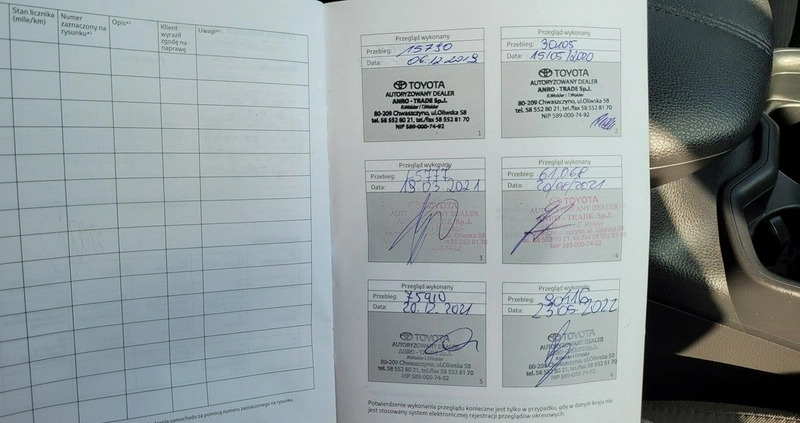 Stan licznika
(mile/km)
Numer
zaznaczony na
rysunku*¹
Opis*²
Klient
wyraził
zgodę na
naprawę
Uwagi*³
samochodu za pomocą numeru zaznaczonego na rysunku
Przegląd wykonany
Przebieg: 15790
Data: 06.12.2019
TOYOTA
AUTORYZOWANY DEALER
ANRO - TRADE Sp.J.
80-209 Chwaszczyno, ul.Oliwska 58
tel. 58 552 80 21, tel./fax 58 552 81 70
NIP 589-000-74-92
1
Przegląd wykonany
Przebieg: 30105
Data: 15/05/2000
TOYOTA
AUTORYZOWANY DEALER
ANRO - TRADE Sp.J.
80-209 Chwaszczyno, ul.Oliwska 58
tel. 58 552 80 21, tel./fax 58 552 81 70
NIP 589-000-74-92
2
Przegląd wykonany
Przebieg: 45777
Data: 18.03.2021
TOYOTA
AUTORYZOWANY DEALER
ul. Oliwska 58
58 552 81 70
3
Przegląd wykonany
Przebieg: 61.068
Data:
TOYOTA
AUTORYZOWANY DEALER
- TRADE Sp.J.
ul. Oliwska 58
58 552 81 70
4
Przegląd wykonany
Przebieg: 75910
Data: 20.12.2021
TOYOTA
AUTORYZOWANY DEALER
80-209 Chwaszczyno, ul.Oliwska 58
tel. 58 552 80 21, tel./fax 58 552 81 70
NIP 589-000-74-92
5
Przegląd wykonany
Przebieg: 90416
Data: 23.05.2022
TOYOTA
AUTORYZOWANY DEALER
80-209 Chwaszczyno, ul.Oliwska 58
tel. 58 552 80 21, tel./fax 58 552 81 70
NIP 589-000-74-92
6
Potwierdzenie wykonania przeglądu konieczne jest tylko w przypadku, gdy w danym kraju nie
jest stosowany system elektronicznej rejestracji przeglądów okresowych.